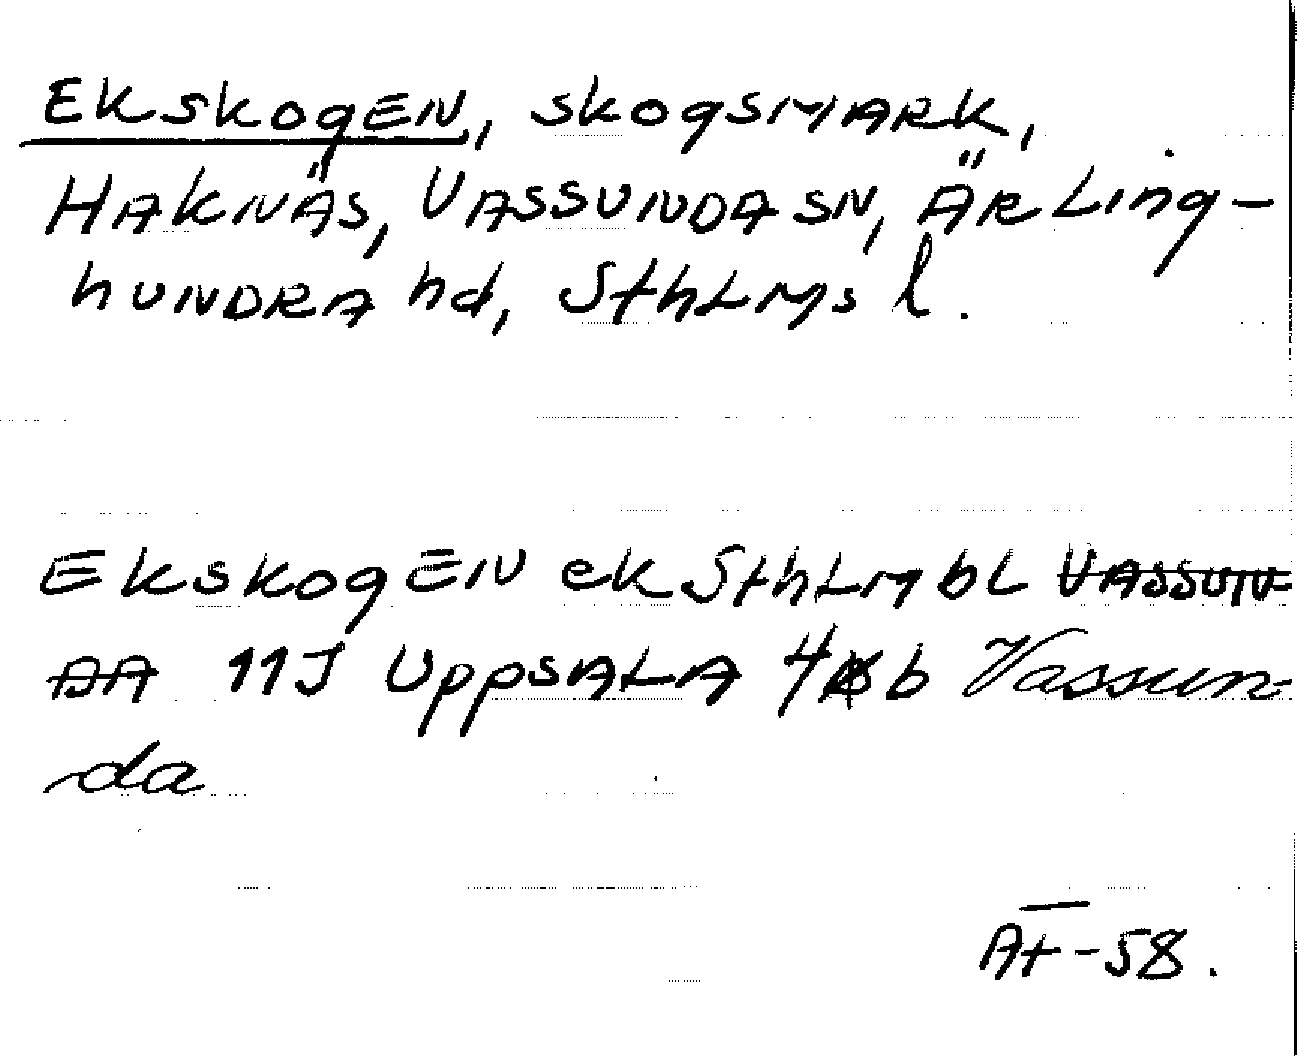 Ekskogen, skogsmark,
Haknäs, Vassunda sn, Ärling-
hundra hd, Sthlms l.
Ekskogen ek Sthlm bl Vassun-
da 11J Uppsala 4 b Vassun-
da
At-58.